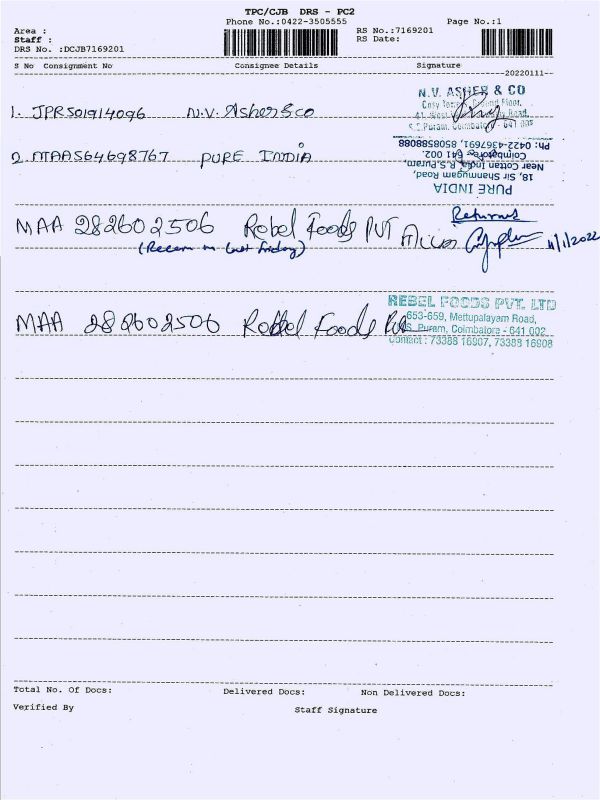 TPC/CJB DRS - PC2
Phone No.:0422-3505555 Page No.:1
Area : RS No.:7169201
Staff : RS Date:
DRS No. :DCJB7169201
S No Consignment No Consignee Details Signature
20220111
N.V. ASHER & CO
1. JPR501914096 N.V. Asher & co
S.Puram, Coimbatore - 641 002
2. MAA564698767 PURE INDIA
PURE INDIA
18, Sir Shanmugam Road,
Near Cotton India, R.S.Puram,
Coimbatore - 641 002.
Ph: 0422-4367691, 8508588088
Returned
MAA 282602506 Rebel Foods PVT 11/1/2022
last friday)
REBEL FOODS PVT. LTD
653-659, Mettupalayam Road,
MAA 282602506 Rebel Foods
R.S. Puram, Coimbatore - 641 002
Contact : 73388 16907, 73388 16908
Total No. Of Docs: Delivered Docs: Non Delivered Docs:
Verified By Staff Signature